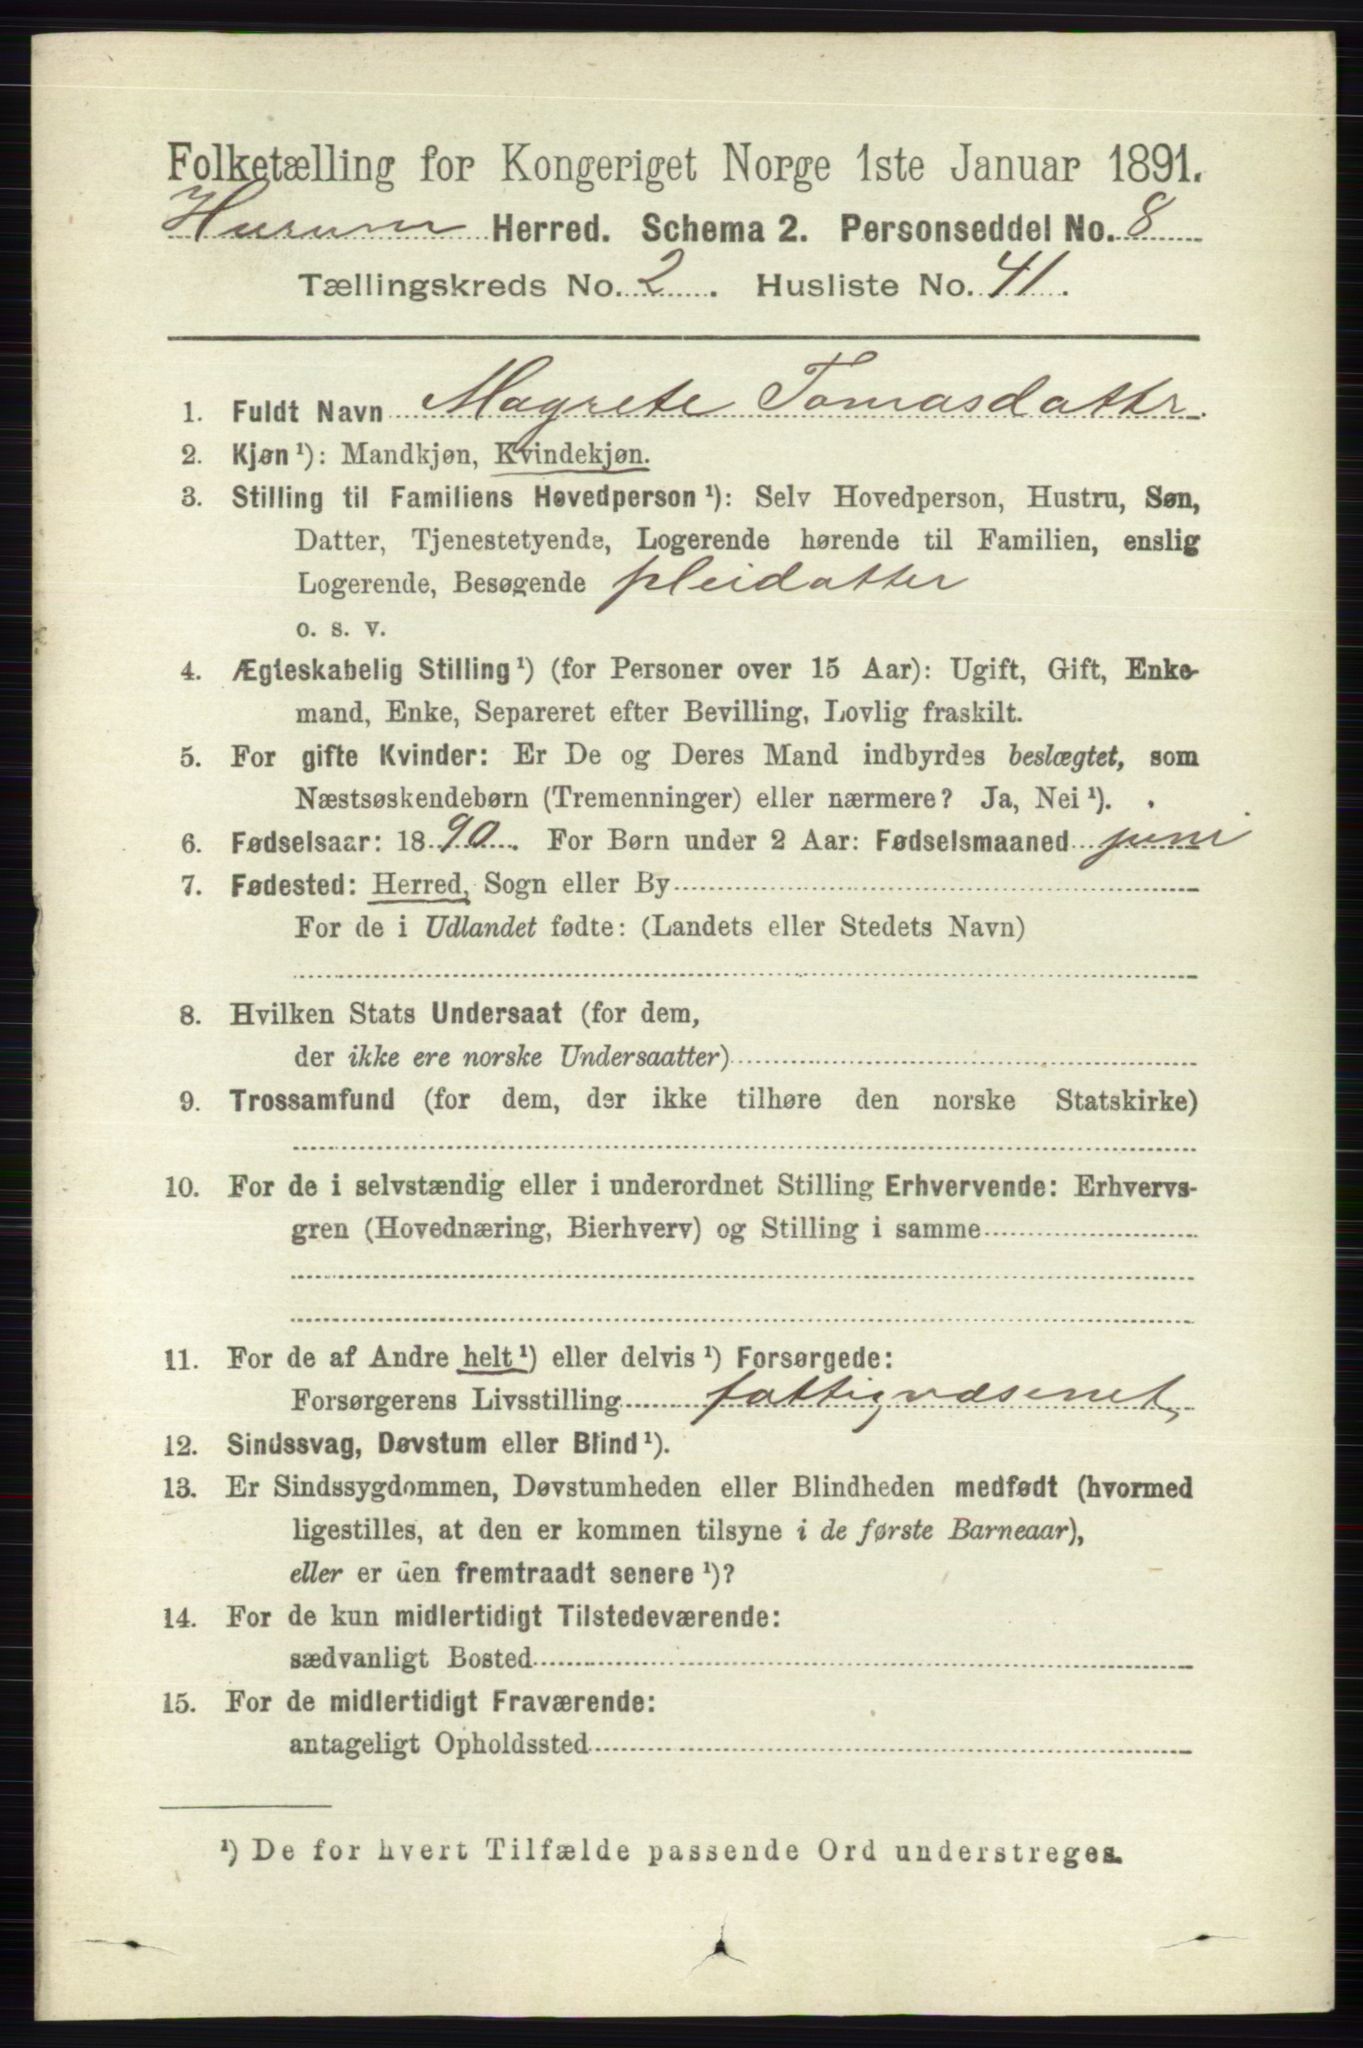 Folketælling for Kongeriget Norge 1ste Januar 1891.
Hurum Herred. Schema 2. Personseddel No. 8
Tællingskreds No. 2. Husliste No. 41.
1. Fuldt Navn Magrete Tomasdattr.
2. Kjøn¹): Mandkjøn, Kvindekjøn.
3. Stilling til Familiens Hovedperson¹): Selv Hovedperson, Hustru, Søn,
Datter, Tjenestetyende, Logerende hørende til Familien, enslig
Logerende, Besøgende pleidatter
o. s. v.
4. Ægteskabelig Stilling¹) (for Personer over 15 Aar): Ugift, Gift, Enke-
mand, Enke, Separeret efter Bevilling, Lovlig fraskilt.
5. For gifte Kvinder: Er De og Deres Mand indbyrdes beslægtet, som
Næstsøskendebørn (Tremenninger) eller nærmere? Ja, Nei¹).
6. Fødselsaar: 1890. For Børn under 2 Aar: Fødselsmaaned juni
7. Fødested: Herred, Sogn eller By
For de i Udlandet fødte: (Landets eller Stedets Navn)
8. Hvilken Stats Undersaat (for dem,
der ikke ere norske Undersaatter)
9. Trossamfund (for dem, der ikke tilhøre den norske Statskirke)
10. For de i selvstændig eller i underordnet Stilling Erhvervende: Erhvervs-
gren (Hovednæring, Bierhverv) og Stilling i samme
11. For de af Andre helt¹) eller delvis¹) Forsørgede:
Forsørgerens Livsstilling fattigvæsenet,
12. Sindssvag, Døvstum eller Blind¹).
13. Er Sindssygdommen, Døvstumheden eller Blindheden medfødt (hvormed
ligestilles, at den er kommen tilsyne i de første Barneaar),
eller er den fremtraadt senere¹)?
14. For de kun midlertidigt Tilstedeværende:
sædvanligt Bosted
15. For de midlertidigt Fraværende:
antageligt Opholdssted
¹) De for hvert Tilfælde passende Ord understreges.